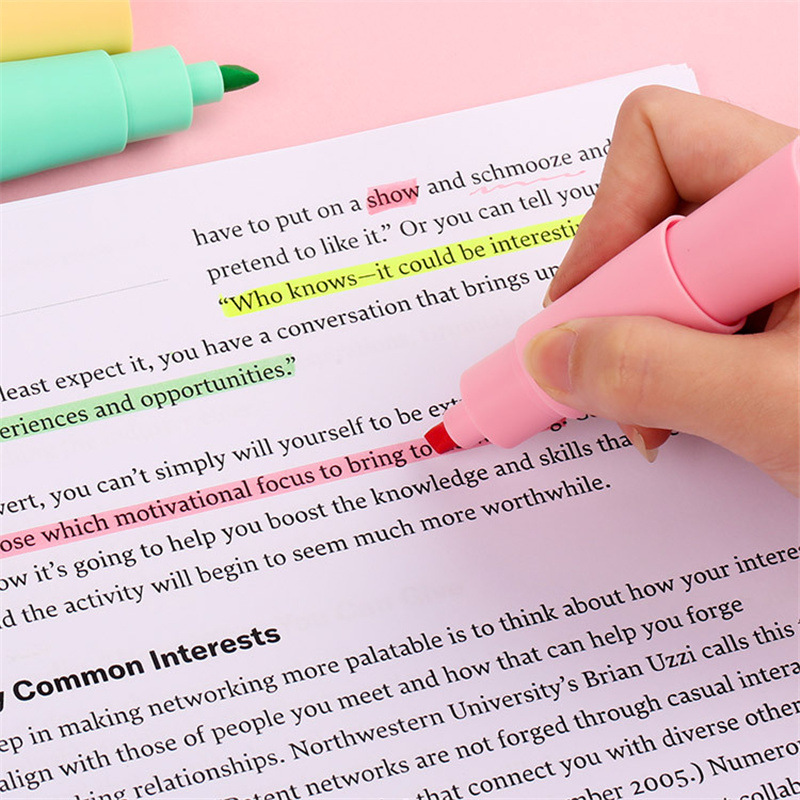 have to put on a show and schmooze and
pretend to like it.” Or you can tell your
“Who knows—it could be interesti
least expect it, you have a conversation that brings up
eriences and opportunities.”
vert, you can’t simply will yourself to be
ose which motivational focus to bring to
ow it’s going to help you boost the knowledge and skills
d the activity will begin to seem much more worthwhile.
y Common Interests
ep in making networking more palatable is to think about how your interes
align with those of people you meet and how that can help you forge
king relationships. Northwestern University’s Brian Uzzi calls this
Potent networks are not forged through casual intera
that connect you with diverse other
mber 2005.) Numero
collab